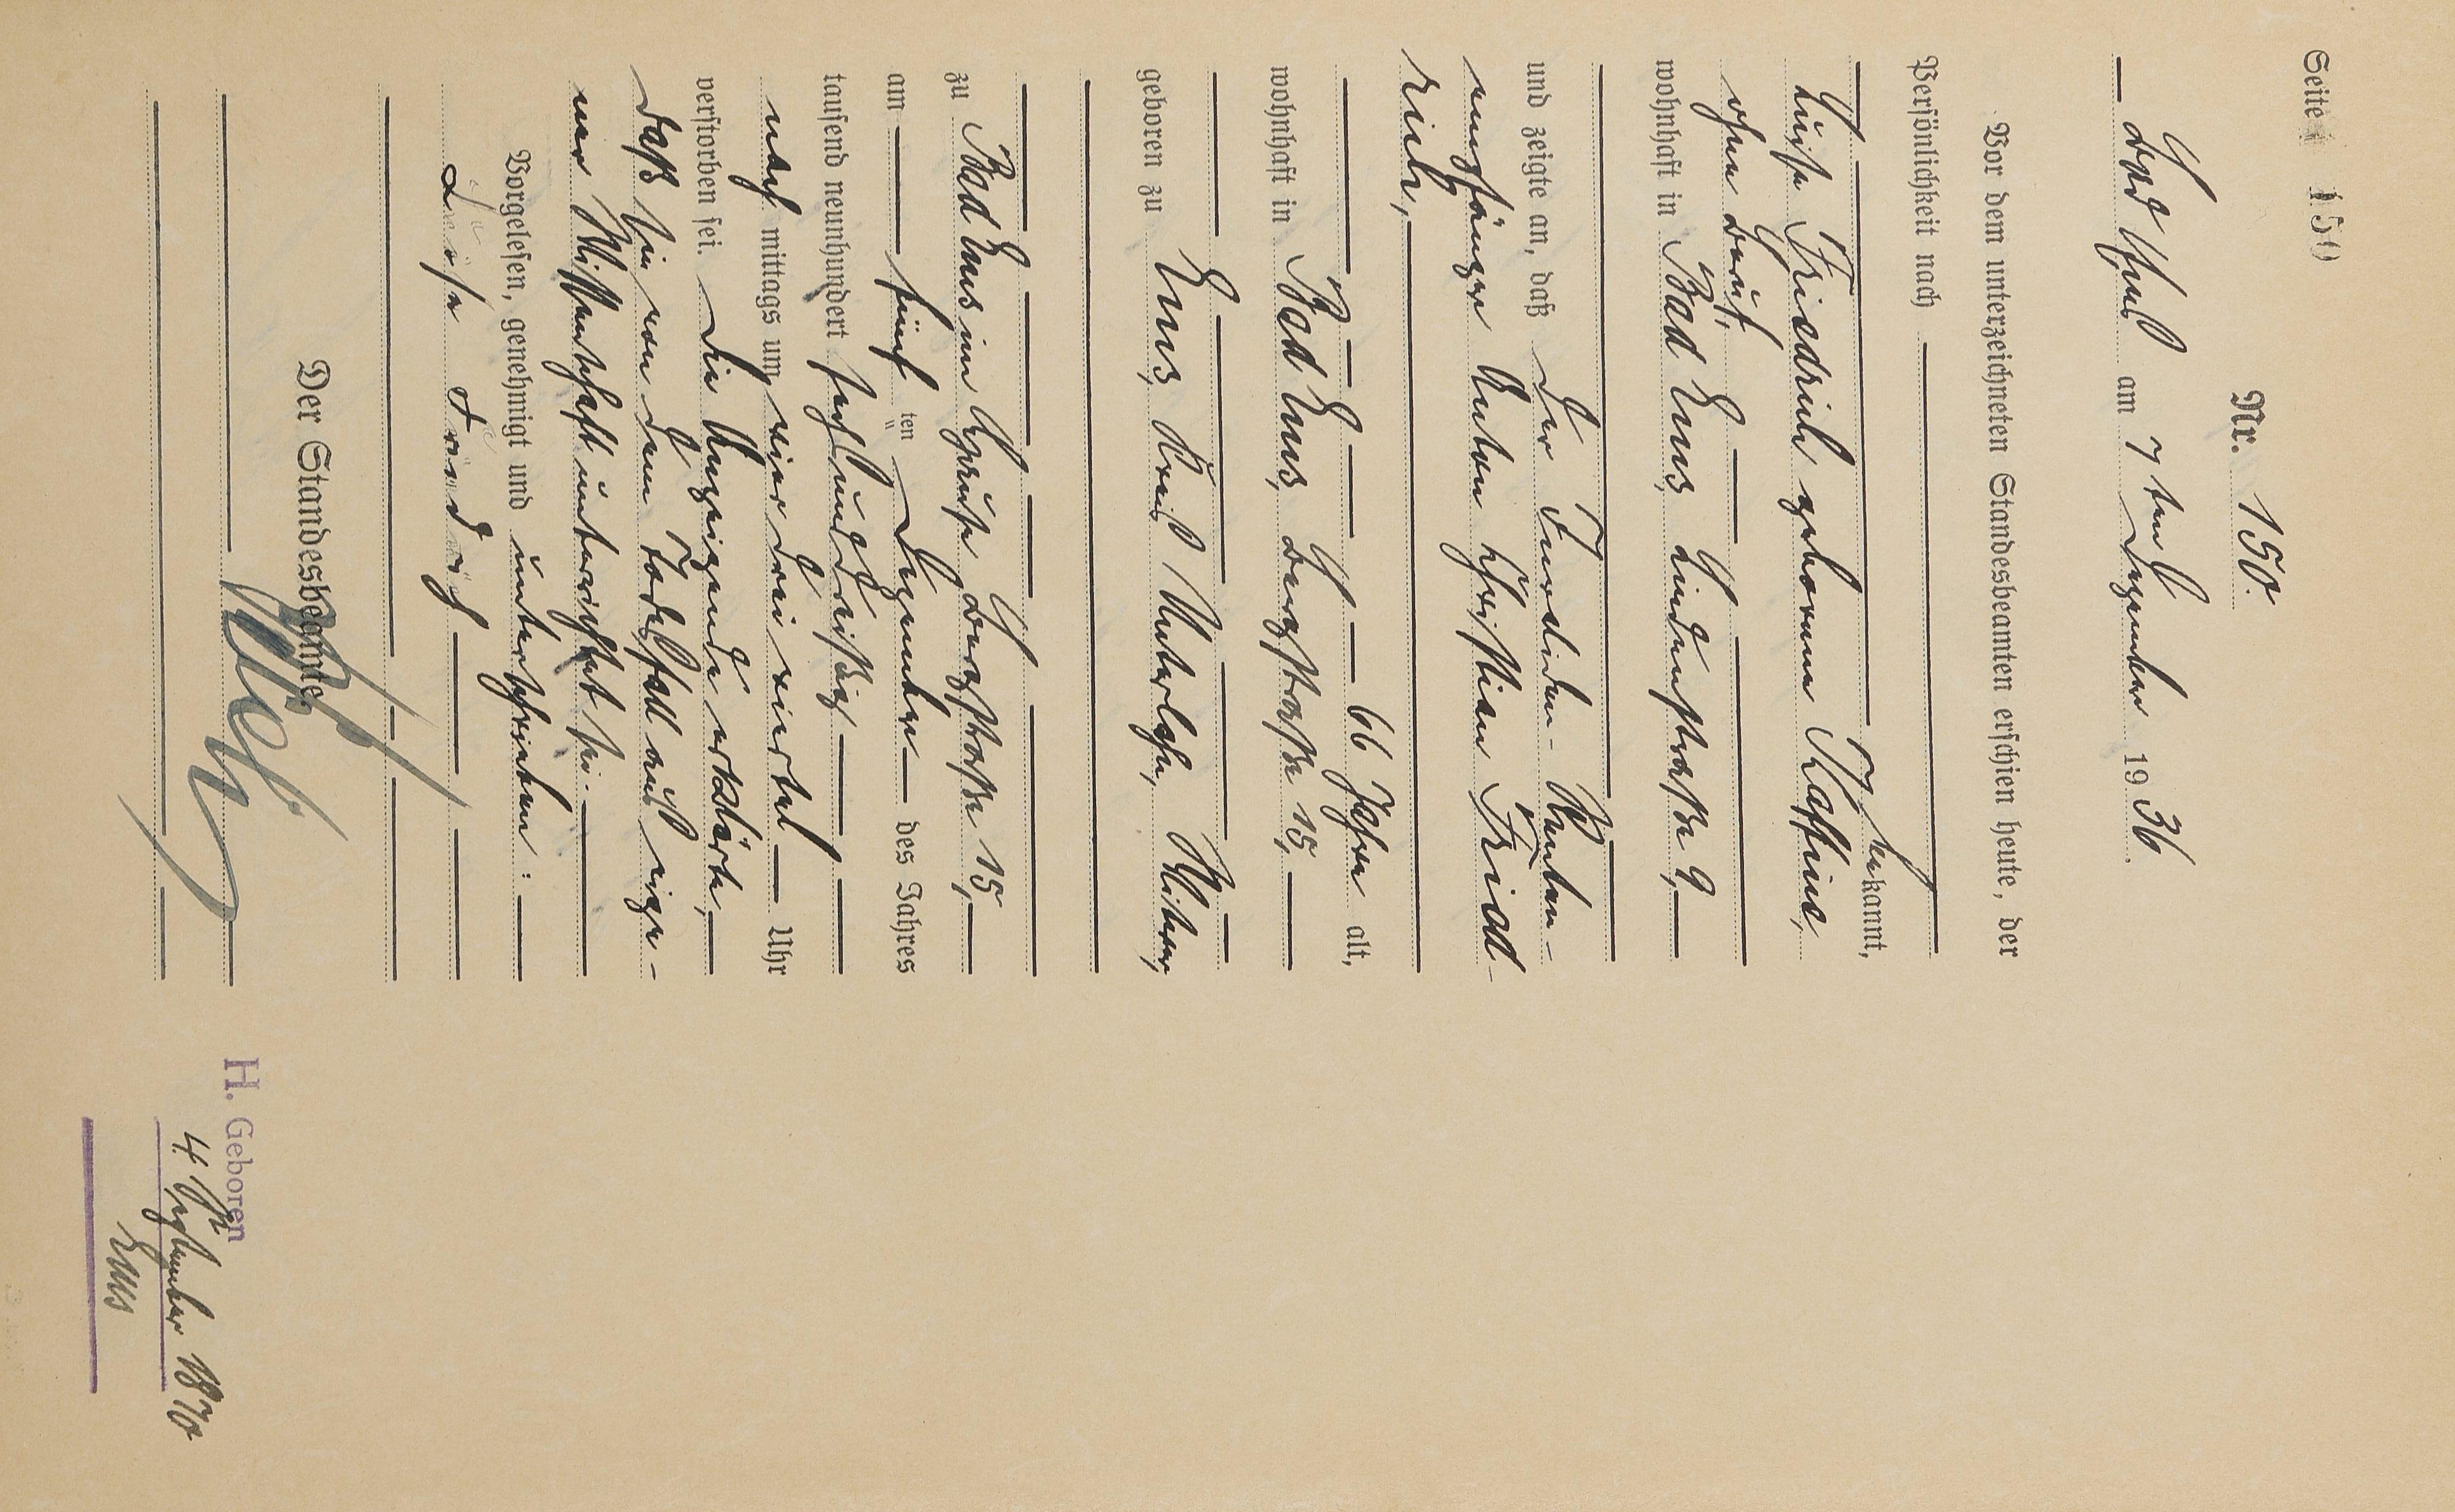 Seite 150
Nr. 150.
Bad Ems am 7ten Dezember 1936.
Vor dem unterzeichneten Standesbeamten erschien heute, der
Persönlichkeit nach
bekannt,
Luise Friedrich geborene
ohne Beruf,
wohnhaft in Bad Ems, Lindenstraße 9,
und zeigte an, daß der Invaliden-Renten-
empfänger Anton Christian Fried-
rich,
66 Jahre alt,
wohnhaft in Bad Ems, Bergstraße 15,
geboren zu Ems, Kreis Unterlahn, Witwer,
zu Bad Ems im Hause Bergstraße 15,
am fünften Dezember des Jahres
tausend neunhundert sechsunddreißig
nach mittags um vier drei viertel Uhr
verstorben sei. Die Anzeigende erklärte,
daß sie von dem Todesfall aus eige-
ner Wissenschaft unterrichtet sei.
Vorgelesen, genehmigt und unterschrieben:
Luise Friedrich
Der Standesbeamte.
H. Geboren
4. September 1870
Ems